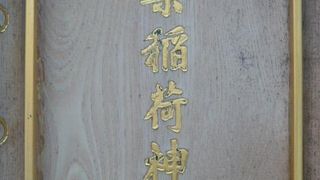 稲荷神